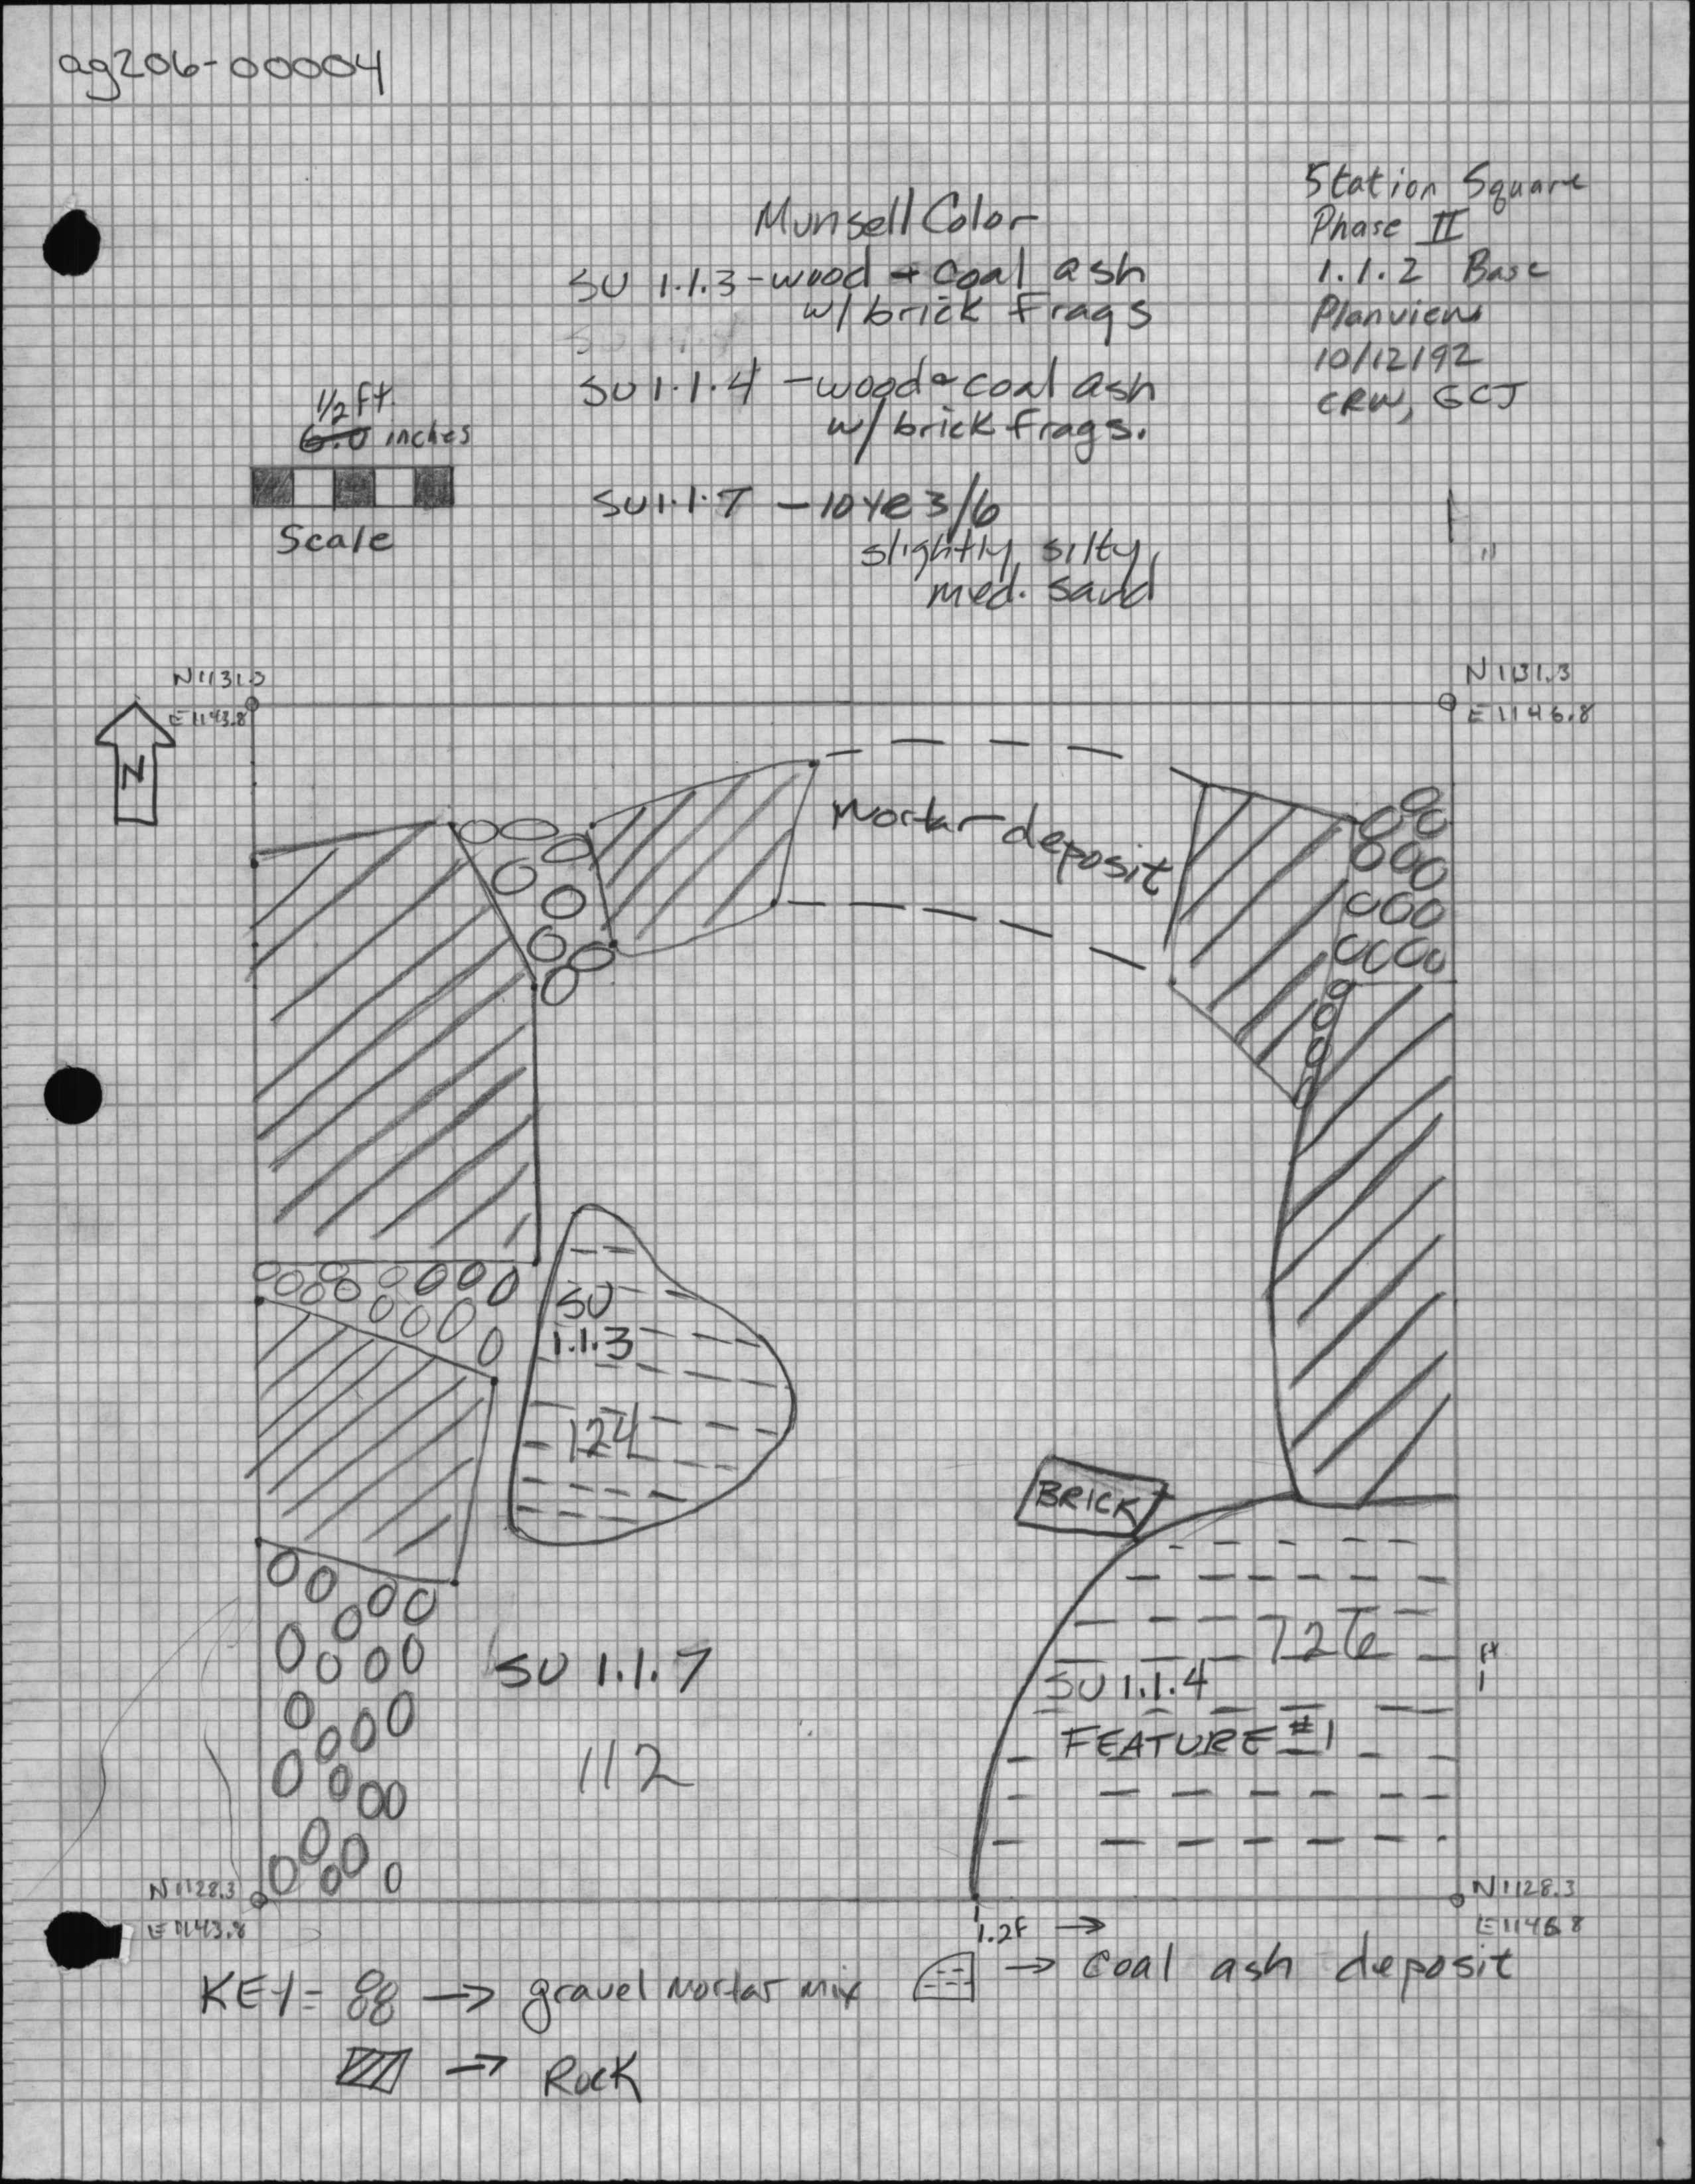 ag206-00004
Station Square
Phase II
1.1.2 Base
Planview
10/12/92
CRW, GCJ
Munsell Color
SU 1.1.3 - wood + coal ash
w/ brick Frags
SU 1.1.4 - wood + coal ash
w/ brick frags.
SU 1.1.7 - 10 YR 3/6
slightly silty,
med. sand
1/2 ft.
6.0 inches
Scale
N1131.3
E1143.8
N 1131.3
E1146.8
N
Mortar deposit
SU
1.1.3
124
BRICK
726
SU 1.1.4
FEATURE #1
SU 1.1.7
112
N1128.3
E1143.8
N1128.3
E1146.8
1.2F →
KEY = → gravel mortar mix
→ Coal ash deposit
→ Rock